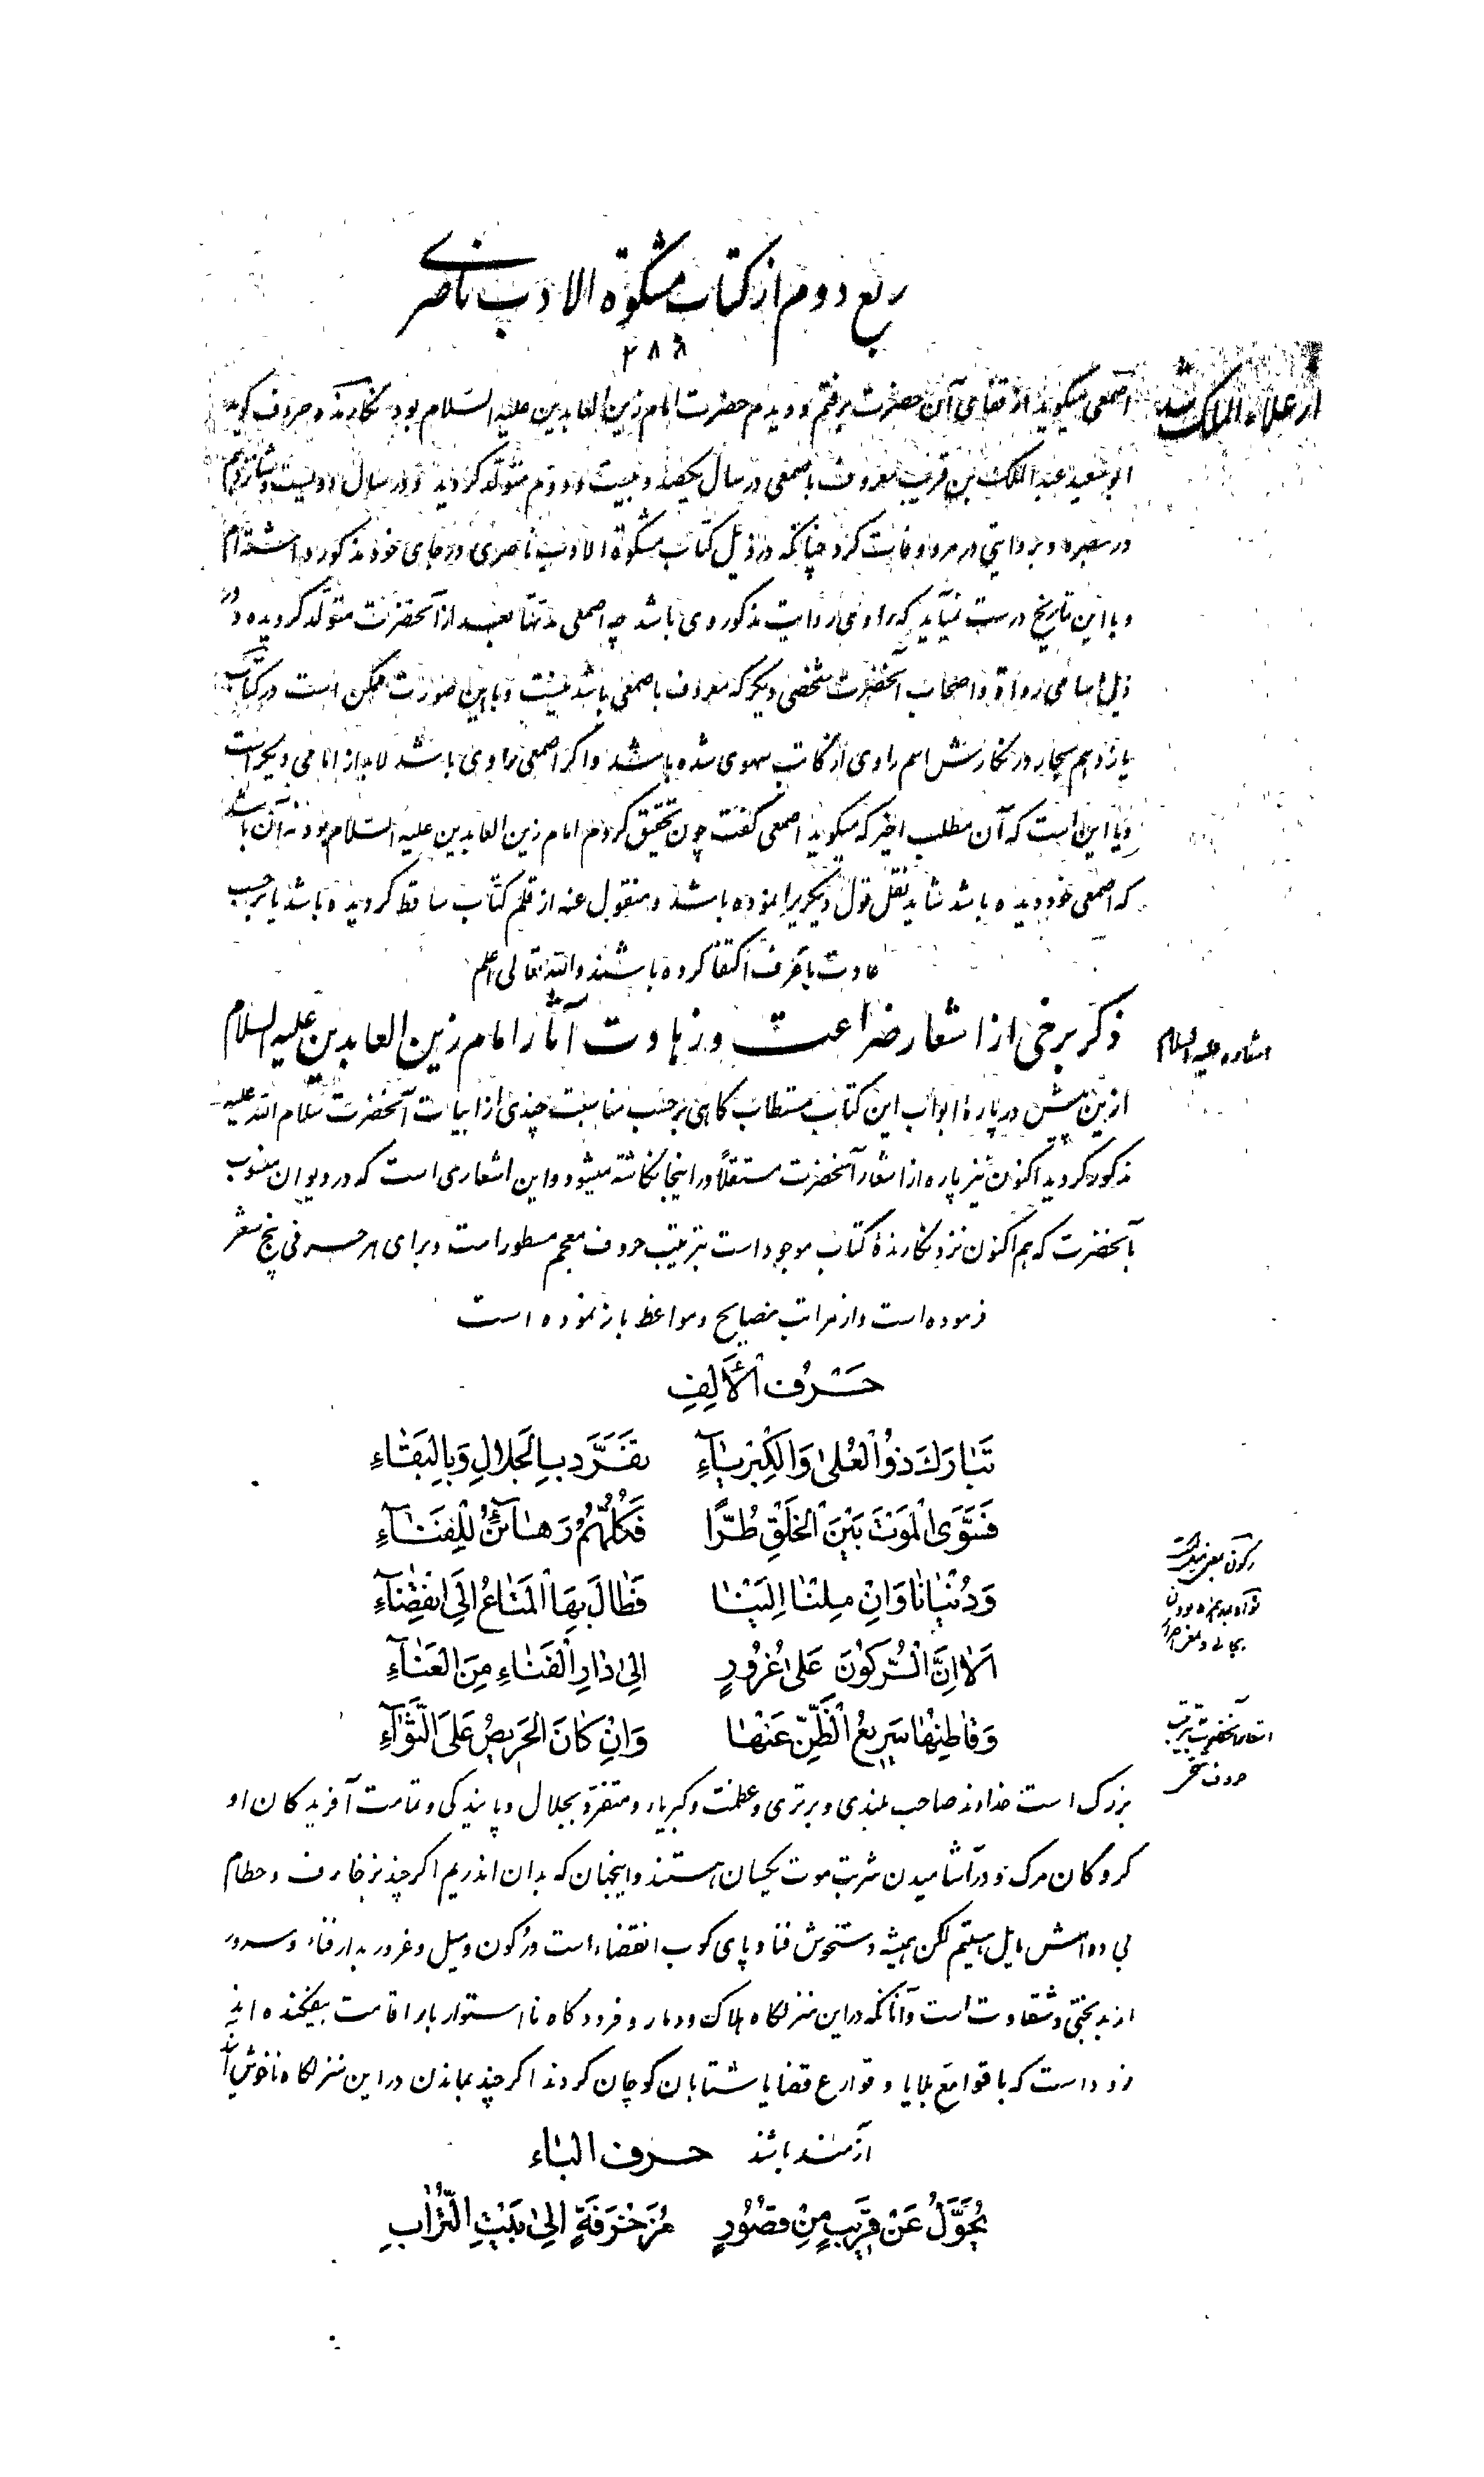 ربع دوم از کتاب مشکوة الادب ناصری
۲۸۸
اصمعی میگوید از قفای آن حضرت برفتم و دیدم حضرت امام زین العابدین علیه السلام بود نگارنده حروف گوید
ابو سعید عبد الملک بن قریب معروف باصمعی در سال یکصد و بیست و دوم متولد گردید و در سال دویست و شانزدهم
در بصره و بروایتی در مرو وفات کرد چنانکه در ذیل کتاب مشکوة الادب ناصری در جای خود مذکور داشته‌ام
و با این تاریخ درست نیاید که راوی روایت مذکور وی باشد چه اصمعی مدتها بعد از آنحضرت متولد گردیده و در
ذیل اسامی رواة و اصحاب آنحضرت شخصی دیگر که معروف باصمعی باشد نیست و باین صورت ممکن است در کتاب
یازدهم بحار در نگارش اسم راوی از کاتب سهوی شده باشد و اگر اصمعی راوی باشد لابد از امامی دیگر است
و یا این است که آن مطلب اخیر که میگوید اصمعی گفت چون تحقیق کردم امام زین العابدین علیه السلام بود نه آن باشد
که اصمعی خود دیده باشد شاید نقل قول دیگریرا نموده باشد و منقول عنه از قلم کتاب ساقط گردیده باشد یا برحسب
عادت باعرف اکتفا کرده باشند والله تعالی اعلم
ذکر برخی از اشعار ضراعت و زهادت آثار امام زین العابدین علیه السلام
اشعاره علیه السلام
ازین پیش در پارهٔ ابواب این کتاب مستطاب گاهی برحسب مناسبت چندی از ابیات آنحضرت سلام الله علیه
مذکور گردید اکنون نیز پاره از اشعار آنحضرت مستقلاً در اینجا نگاشته میشود و این اشعاری است که در دیوان منسوب
بآنحضرت که هم اکنون نزد نگارندهٔ کتاب موجود است بترتیب حروف معجم مسطور است و برای هر حرفی پنج شعر
فرموده است و از مراتب نصایح و مواعظ باز نموده است
حَرْفُ الْأَلِفِ
تَبٰارَكَ ذُو الْعُلىٰ وَالْكِبْرِيٰآءِ تَفَرَّدَ بِالْجَلالِ وَبِالْبَقٰاءِ
فَسَوَّى الْمَوْتَ بَيْنَ الْخَلْقِ طُرًّا فَكُلُّهُمُ رَهٰآئِنُ لِلْفَنٰآءِ
وَدُنْيٰانٰا وَاِنْ مِلْنٰا اِلَيْنٰا فَطٰالَ بِهَا الْمَتٰاعُ اِلَى انْقِضٰآءِ
اَلاٰ اِنَّ الرُّكُونَ عَلىٰ غُرُورٍ اِلىٰ دٰارِ الْفَنٰاءِ مِنَ الْعَنٰآءِ
وَقٰاطِنُهٰا سَرِيعُ الظَّعْنِ عَنْهٰا وَاِنْ كٰانَ الْحَرِيصُ عَلَى الثَّوٰآءِ
اشعار آنحضرت بترتیب
حروف
بزرگ است خداوند صاحب بلندی و برتری و عظمت و کبریاء و متفرد بجلال و پایندگی و تمامت آفریدگان او
گروگان مرگ و در آشامیدن شربت موت یکسان هستند و اینجهان که بدان اندریم اگر چند بزخارف و حطام
بی دوامش مایل هستیم لکن همیشه دستخوش فنا و پای کوب انقضاء است و رکون و میل و غرور بدار فناء و سرور
از بدبختی و شقاوت است و آنانکه در این منزلگاه هلاک و دمار و فرودگاه نااستوار بار اقامت بیفکنده اند
زود است که با قوامع بلایا و قوارع قضایا شتابان کوچان گردند اگر چند بماندن در این منزلگاه ناخوش آیند
آزمند باشند حرف الباء
يُحَوَّلُ عَنْ قَرِيبٍ مِنْ قُصُورٍ مُزَخْرَفَةٍ اِلىٰ بَيْتِ التُّرٰابِ